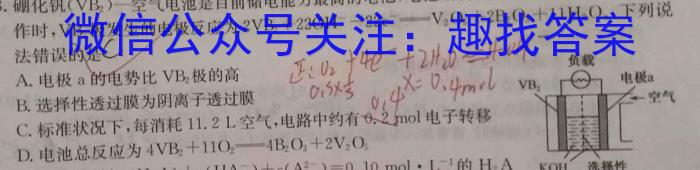 硼化钒(VB₂)—空气电池是目前储电能力最高的电池
下列说
作时,VB₂
微信公众号关注：趣找答案
法错误的是
正:O₂+4e
A. 电极 a 的电势比 VB₂ 极的高
X=0.4mol
B. 选择性透过膜为阴离子透过膜
0.4
C. 标准状况下,每消耗 11.2 L 空气,电路中约有 0.2 mol 电子转移
D. 电池总反应为 4VB₂+11O₂══4B₂O₃+2V₂O₅
负载
VB₂
电极a
空气
KOH
选择性
(HA⁻)+c(A²⁻)=0.10 mol·L⁻¹的 H₂A